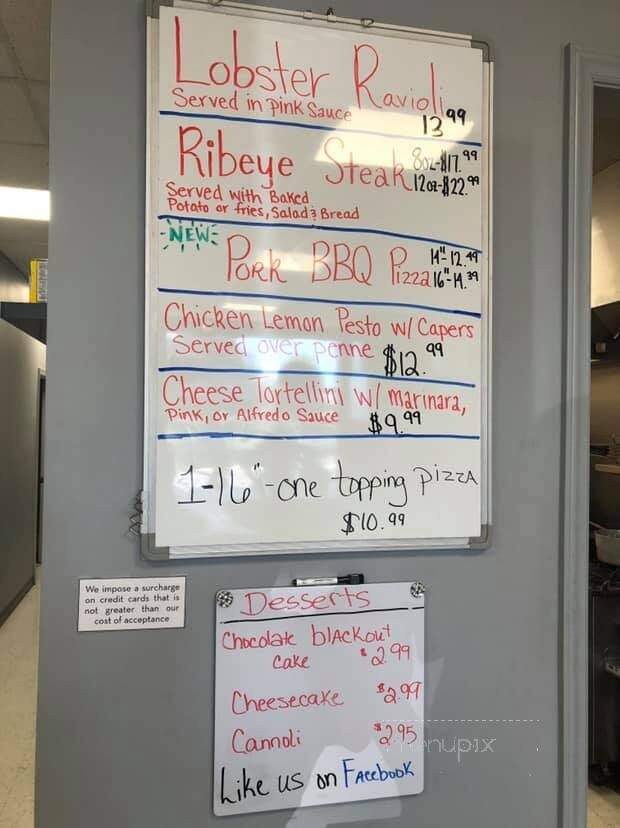 Lobster Ravioli
Served in Pink Sauce
13.99
Ribeye Steak 8oz-$17.99
12oz-$22.99
Served with Baked
Potato or fries, Salad & Bread
NEW:
Pork BBQ Pizza 14"-12.49
16"-14.39
Chicken Lemon Pesto w/ Capers
Served over penne $12.99
Cheese Tortellini w/ marinara,
Pink, or Alfredo Sauce $9.99
1-16"-one topping pizza
$10.99
We impose a surcharge
on credit cards that is
not greater than our
cost of acceptance
Desserts
Chocolate blackout
cake $2.99
Cheesecake $2.99
Cannoli $2.95
Like us on Facebook
menupix